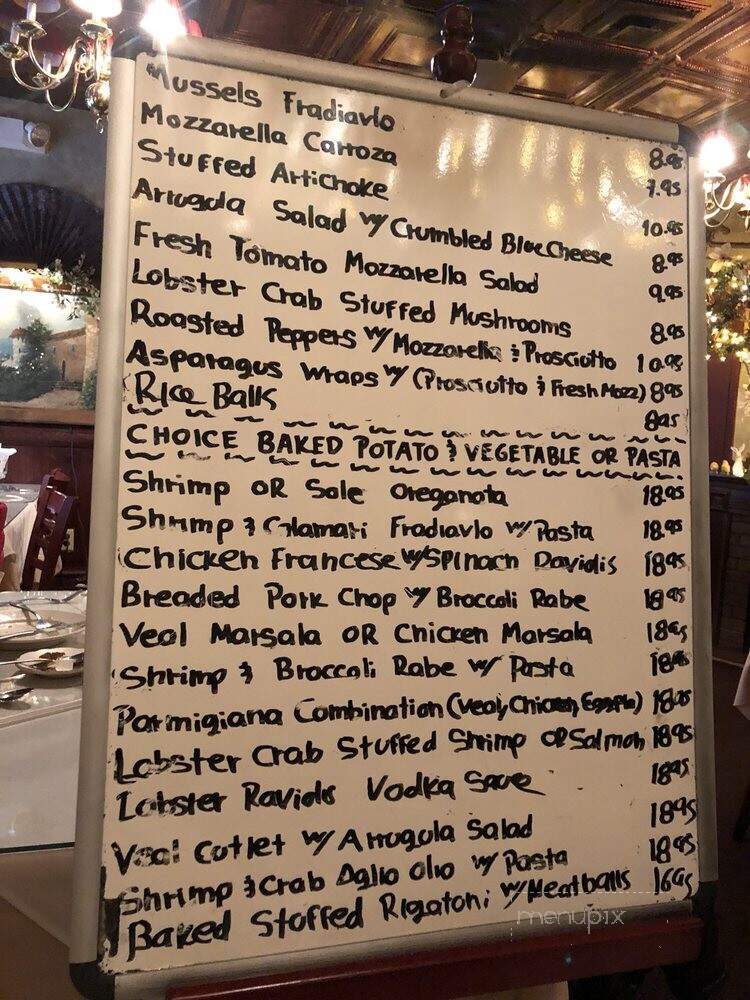 Mussels Fradiavlo 8.95
Mozzarella Carroza 7.95
Stuffed Artichoke 10.95
Arrugola Salad w/ Crumbled Blue Cheese 8.95
Fresh Tomato Mozzarella Salad 9.95
Lobster Crab Stuffed Mushrooms 8.95
Roasted Peppers w/ Mozzarella & Prosciutto 10.95
Asparagus Wraps w/ (Prosciutto & Fresh Mozz) 8.95
Rice Balls 8.95
CHOICE BAKED POTATO & VEGETABLE OR PASTA
Shrimp OR Sole Oreganata 18.95
Shrimp & Calamari Fradiavlo w/ Pasta 18.95
Chicken Francese w/ Spinach Davidis 18.95
Breaded Pork Chop w/ Broccoli Rabe 18.95
Veal Marsala OR Chicken Marsala 18.95
Shrimp & Broccoli Rabe w/ Pasta 18.95
Parmigiana Combination (Veal, Chicken, Eggpl) 18.95
Lobster Crab Stuffed Shrimp OR Salmon 18.95
Lobster Raviolis Vodka Sauce 18.95
Veal Cutlet w/ Arrugola Salad 18.95
Shrimp & Crab Aglio Olio w/ Pasta 18.95
Baked Stoffed Rigatoni w/ Meatballs 16.95
menupix